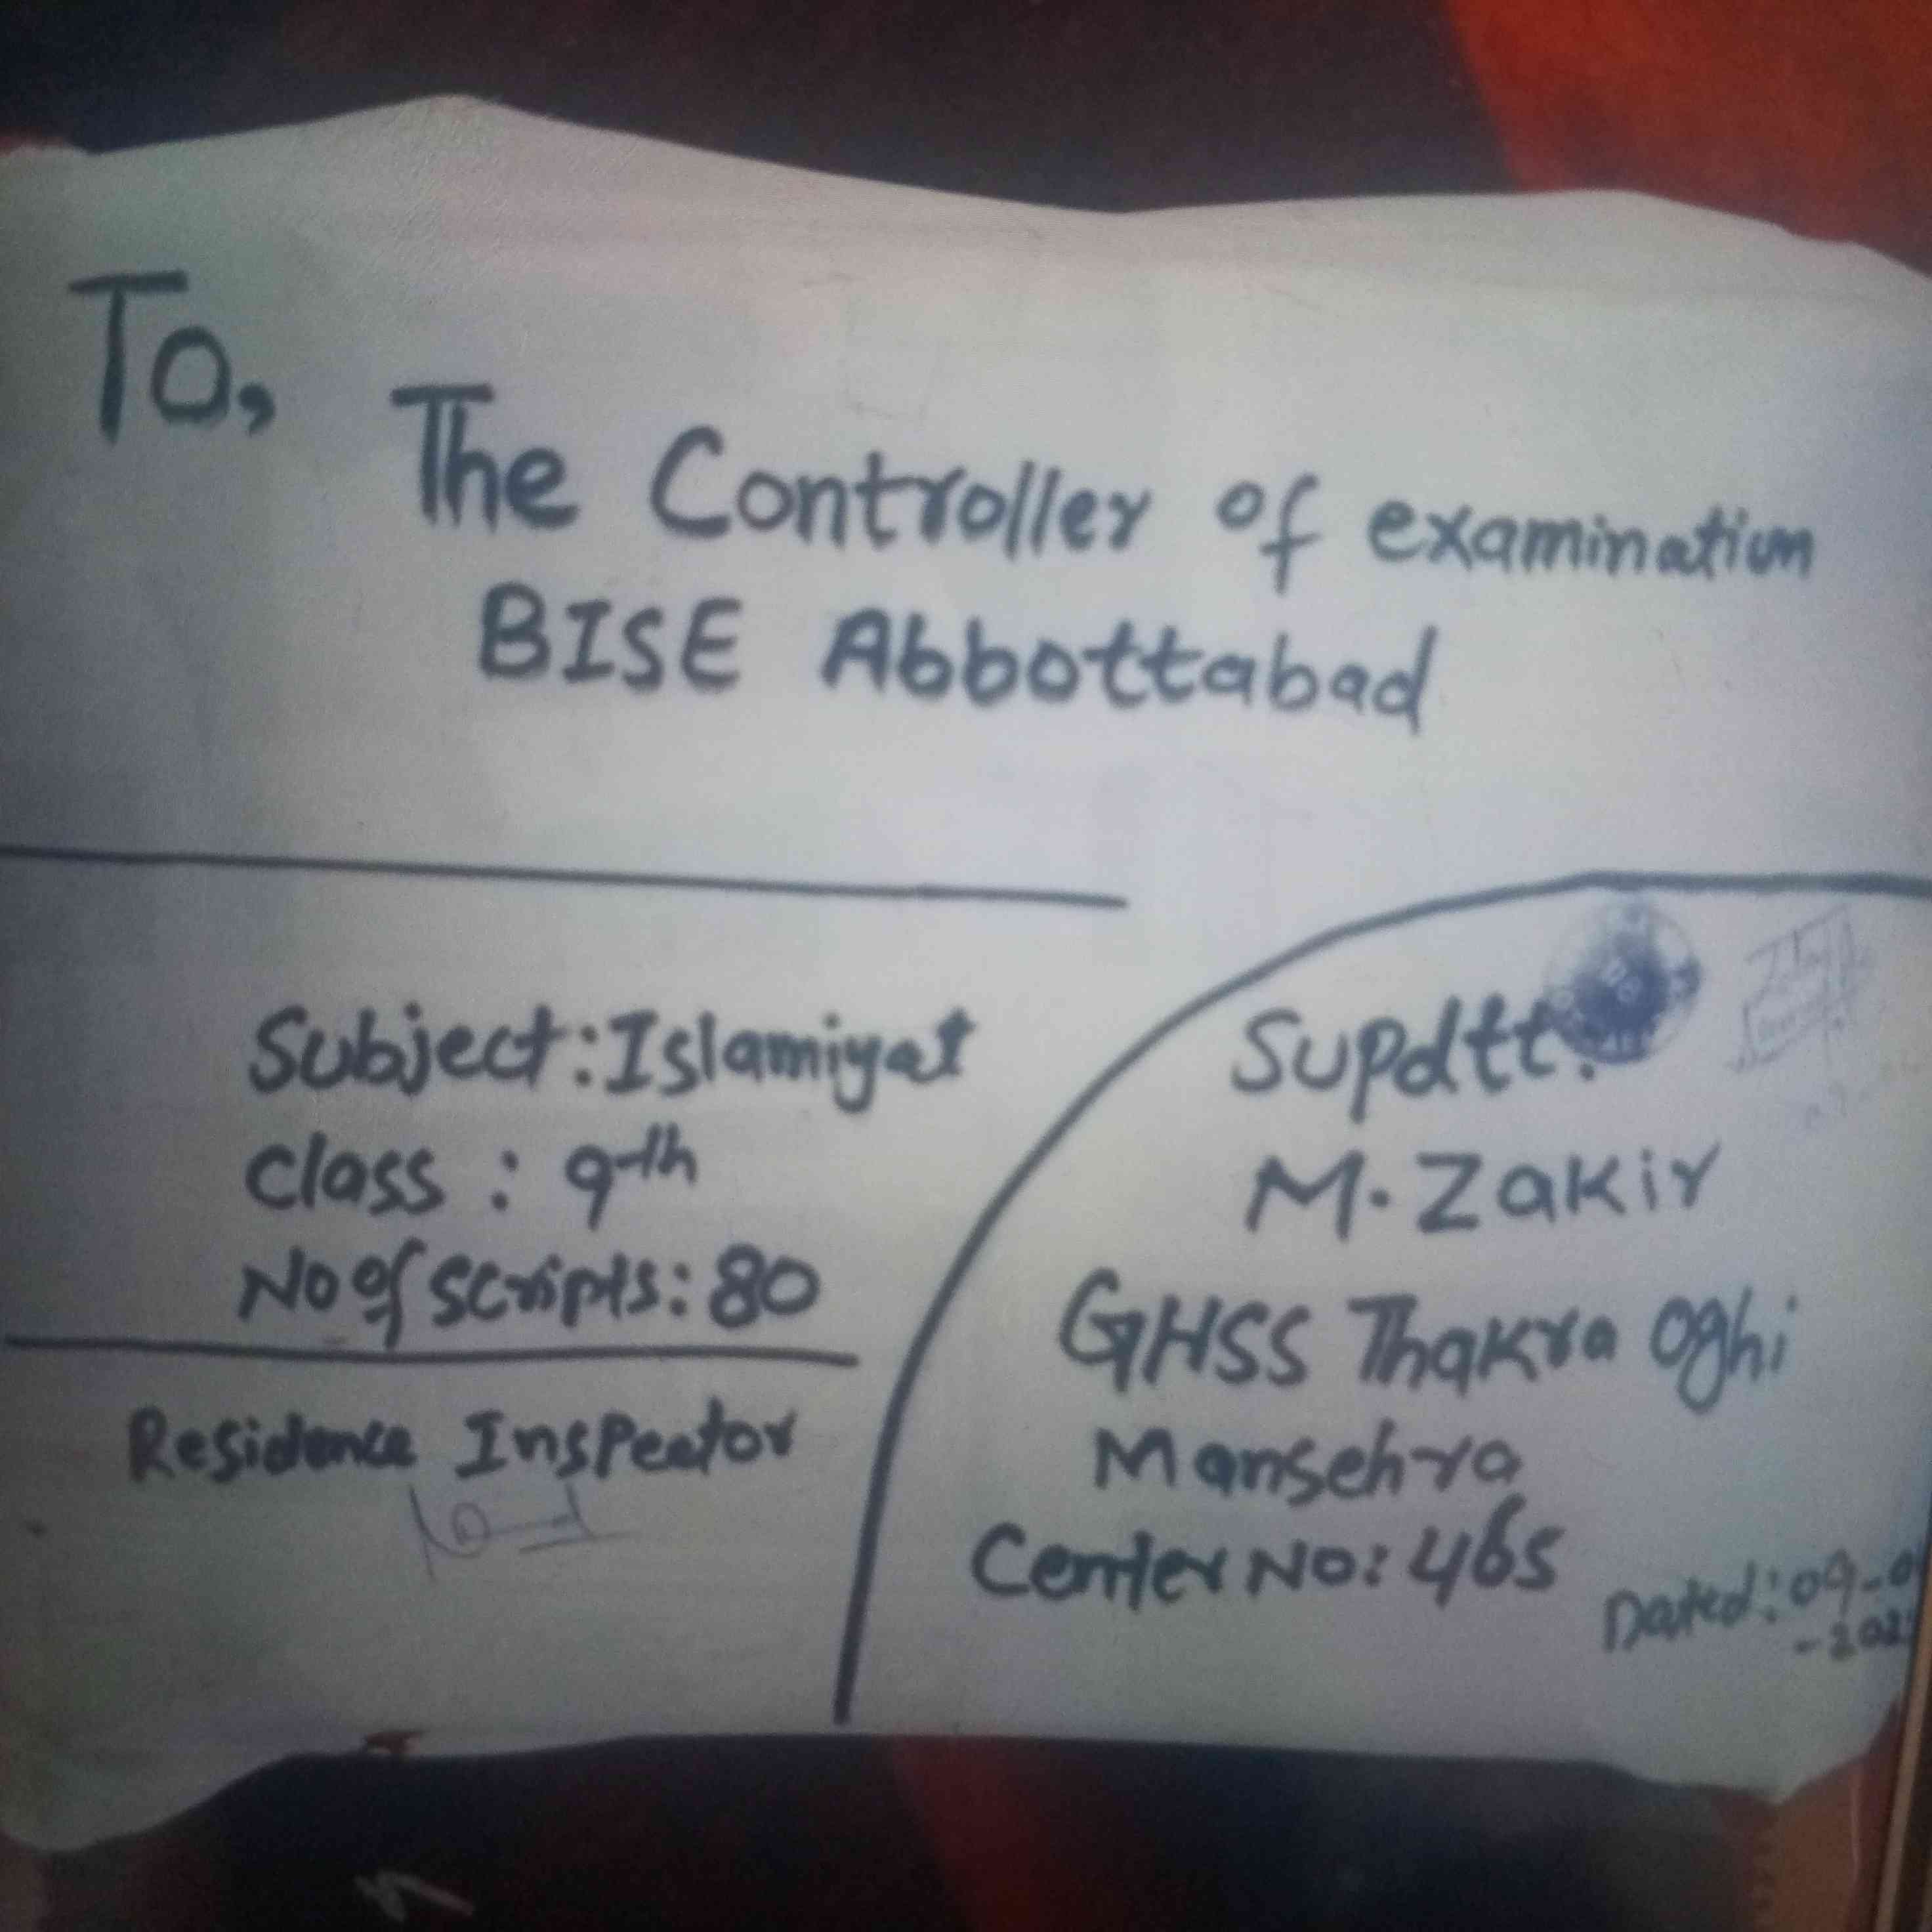 To,
The Controller of examination
BISE Abbottabad
Subject: Islamiyat
Class : 9th
No of scripts: 80
Residence Inspector
Supdtt.
M. Zakir
GHSS Thakra Oghi
Mansehra
Center No: 465
Dated: 09-0